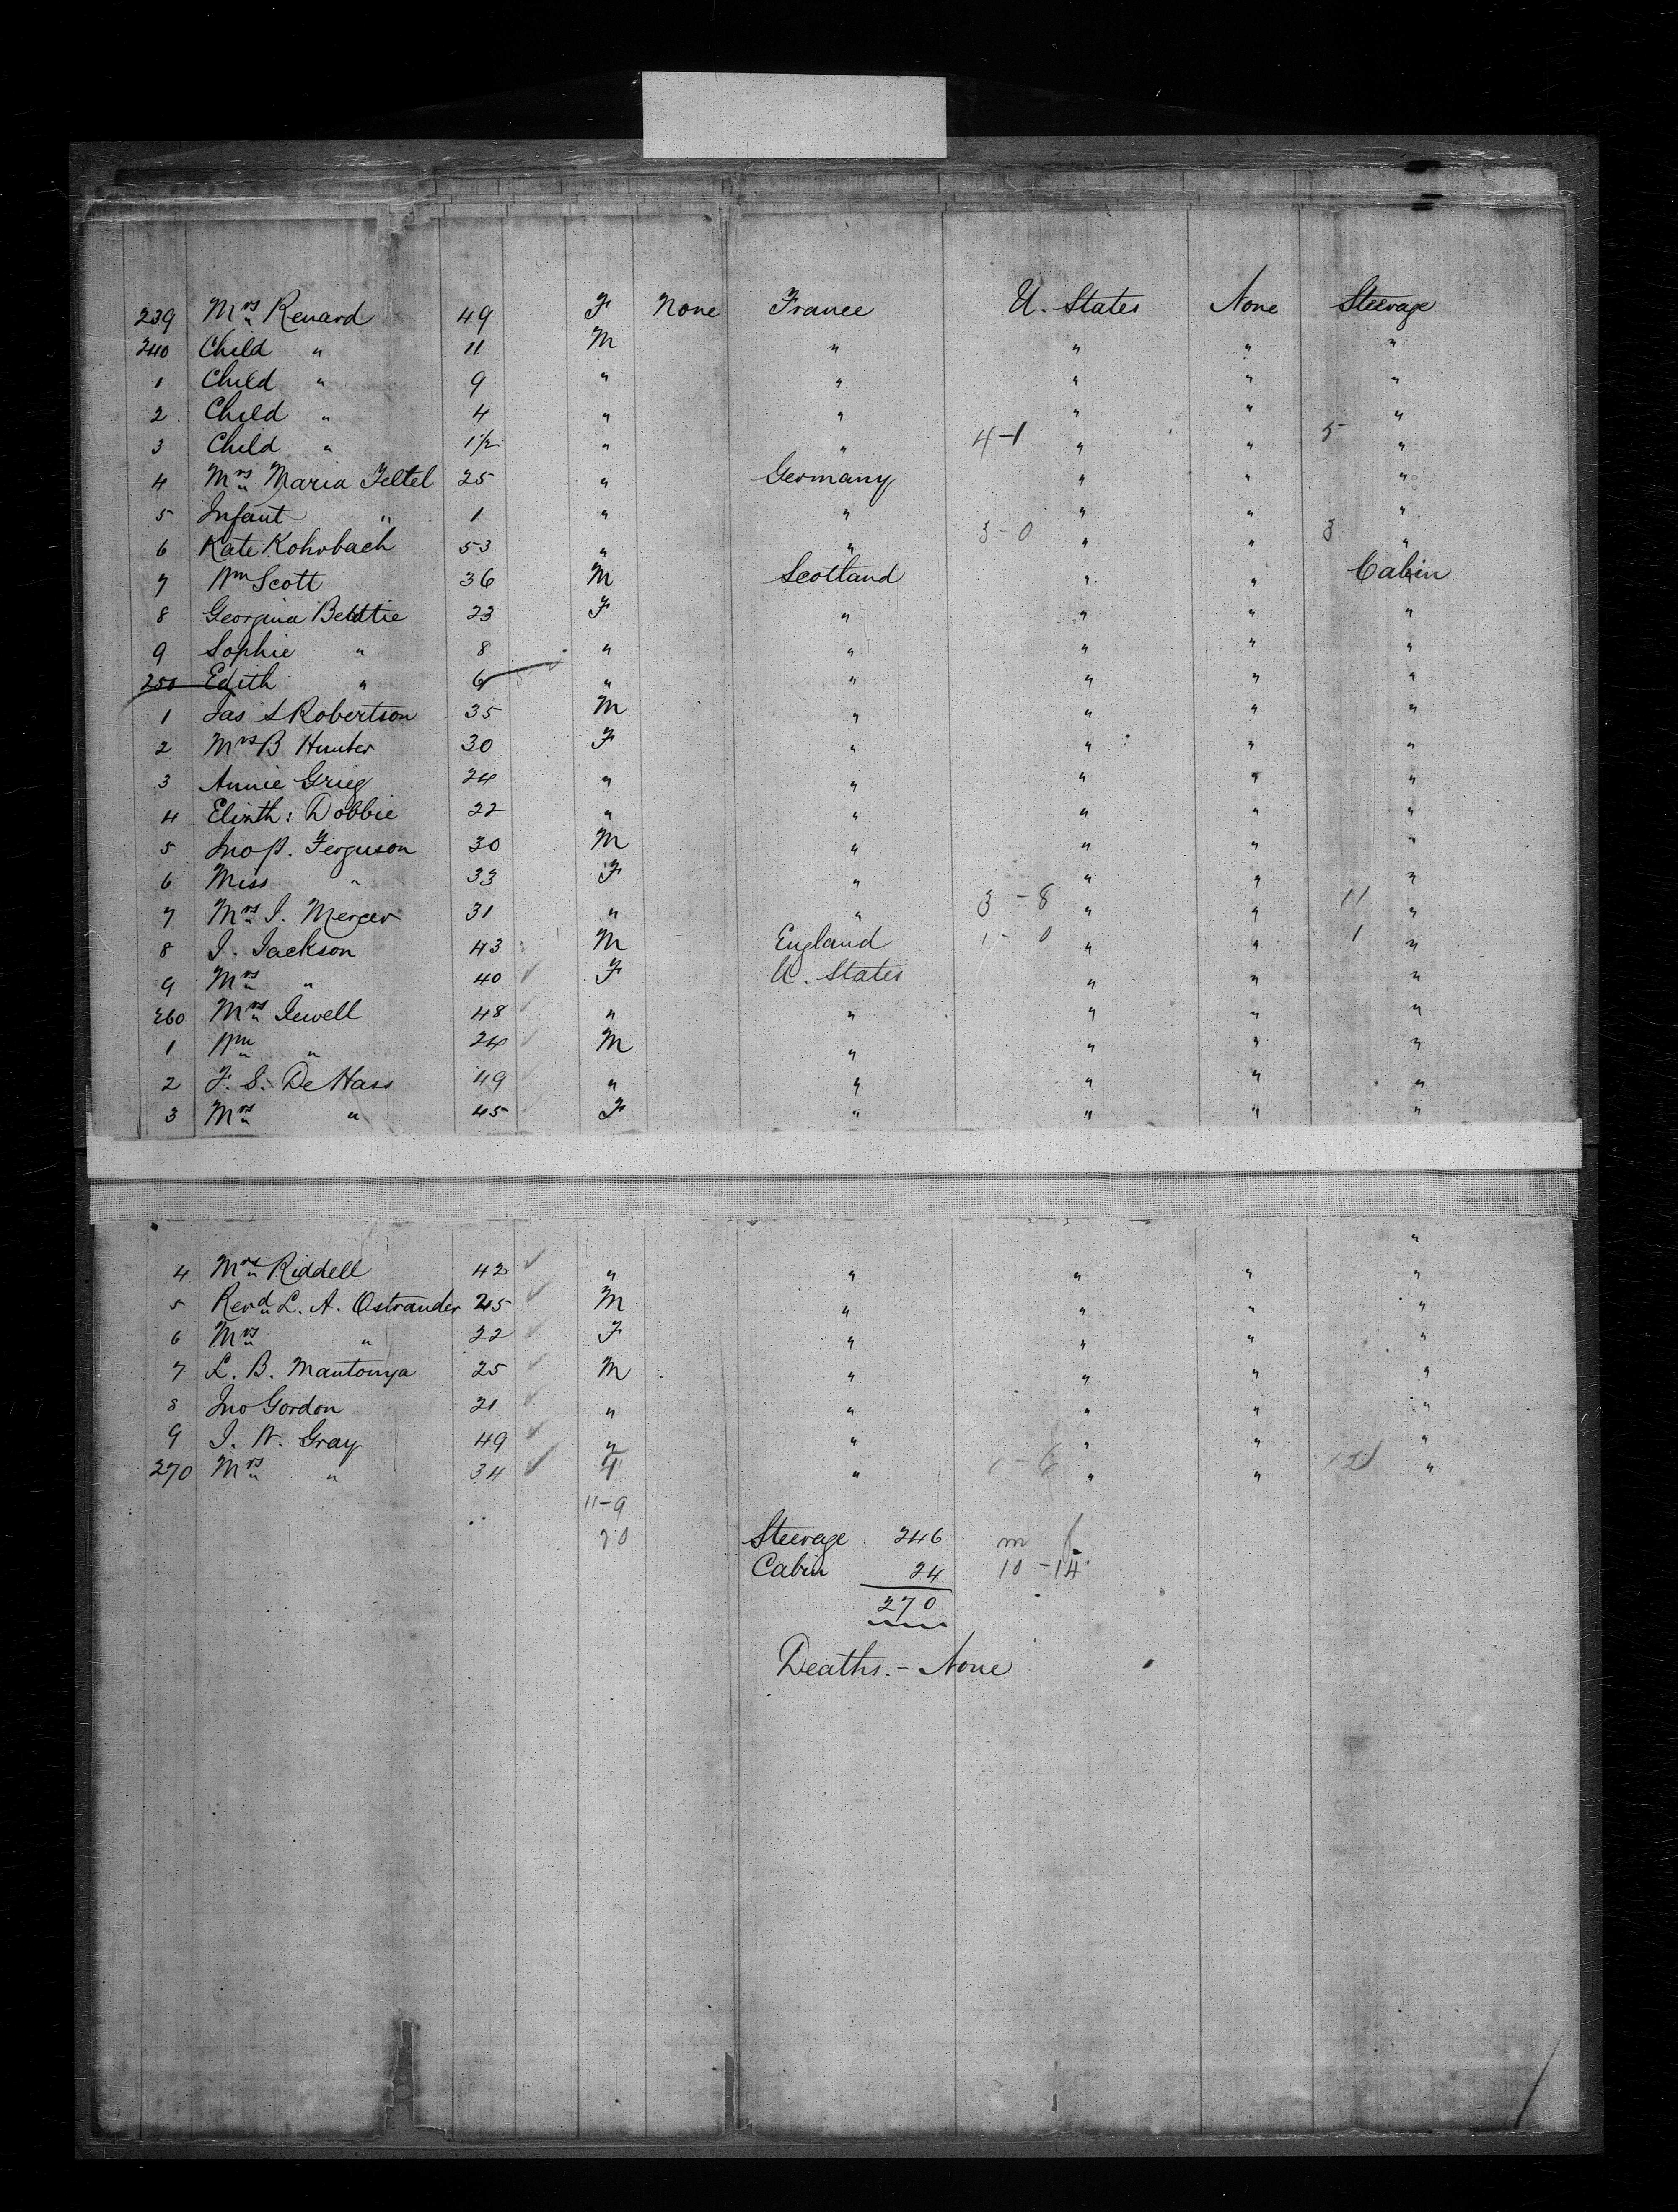 239 Mrs Renard 49 F None France U. States None Steerage
240 Child " 11 M " " " "
1 Child " 9 " " " " "
2 Child " 4 " " " " "
3 Child " 1½ " " 4-1 " " 5 "
4 Mrs Maria Teltel 25 " Germany " " "
5 Infant " 1 " " " " "
6 Kate Kohrbach 53 " " 3-0 " " 3 "
7 Wm Scott 36 M Scotland " " Cabin
8 Georgina Beattie 23 F " " " "
9 Sophie " 8 " " " " "
250 Edith " 6 " " " " "
1 Jas S Robertson 35 M " " " "
2 Mrs B Hunter 30 F " " " "
3 Annie Grieg 24 " " " " "
4 Elizth: Dobbie 22 " " " " "
5 Jno P. Ferguson 30 M " " " "
6 Miss " 33 F " " " "
7 Mrs J. Mercer 31 " " 3-8 " " 11 "
8 J. Jackson 43 M England 1-0 " " 1 "
9 Mrs " 40 F U. States " " "
260 Mrs Jewell 48 " " " " "
1 Wm " 24 M " " " "
2 F. S. De Hass 49 " " " " "
3 Mrs " 45 F " " " "
"
4 Mrs Riddell 42 " " " " "
5 Revd L. A. Ostrander 25 M " " " "
6 Mrs " 22 F " " " "
7 L. B. Mantonya 25 M " " " "
8 Jno Gordon 21 " " " " "
9 J. W. Gray 49 " " " " "
270 Mrs " 34 F " - 6 " " 12 "
11-9
20
Steerage 246 m f
Cabin 24 10-14
270
Deaths.- None